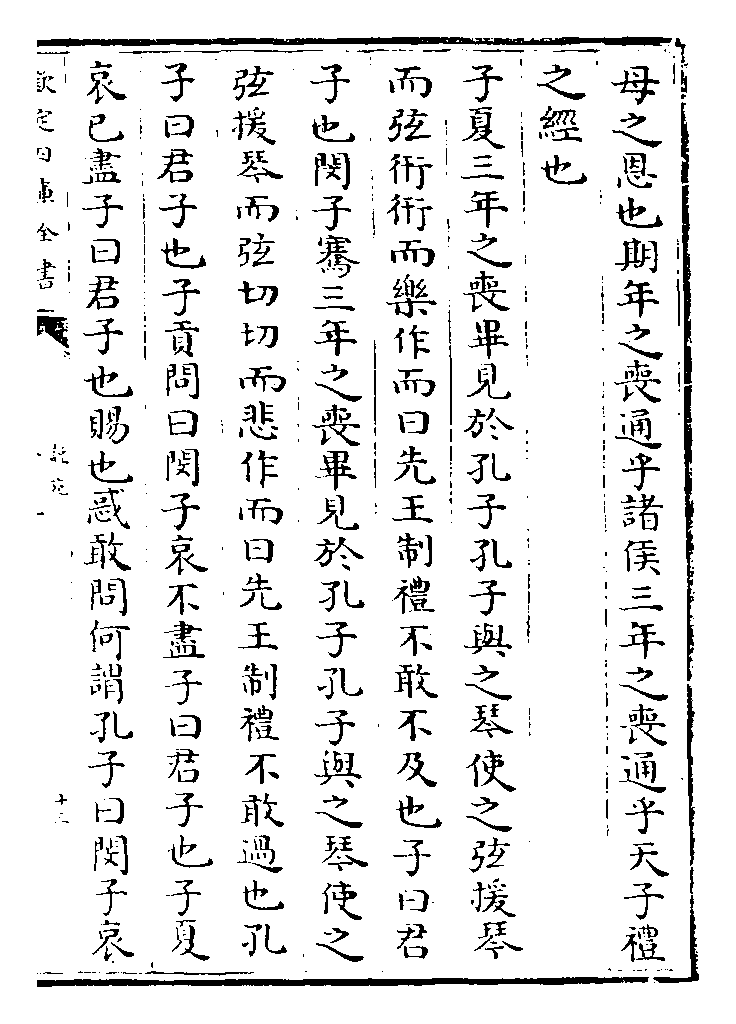 母之恩也期年之喪通乎諸侯三年之喪通乎天子禮
之經也
子夏三年之喪畢見於孔子孔子與之琴使之弦援琴
而弦衎衎而樂作而曰先王制禮不敢不及也子曰君
子也閔子騫三年之喪畢見於孔子孔子與之琴使之
弦援琴而弦切切而悲作而曰先王制禮不敢過也孔
子曰君子也子貢問曰閔子哀不盡子曰君子也子夏
哀已盡子曰君子也賜也惑敢問何謂孔子曰閔子哀
欽定四庫全書
說苑